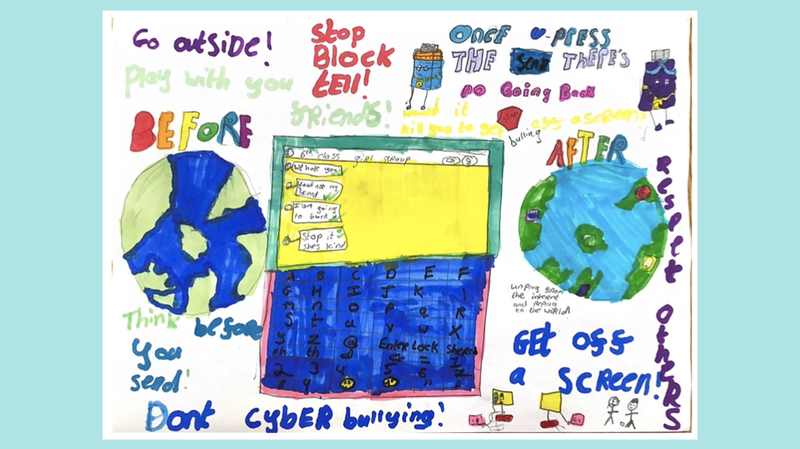 Go outside!
Play with you
friends!
Stop
Block
tell!
Once u press
THE send THERE'S
no Going Back
would it
kill you to get off a screen!
Stop
bulling
BEFORE
AFTER
6th class girl group
We hate you
I am going
to block u
Stop it
she's kind
A B C D E F
Enter Lock
unplug from
the internet
and replug
to the world
Respect Others
Think before
you
send!
GEt off
a SCREEN!
Dont cybER bullying!